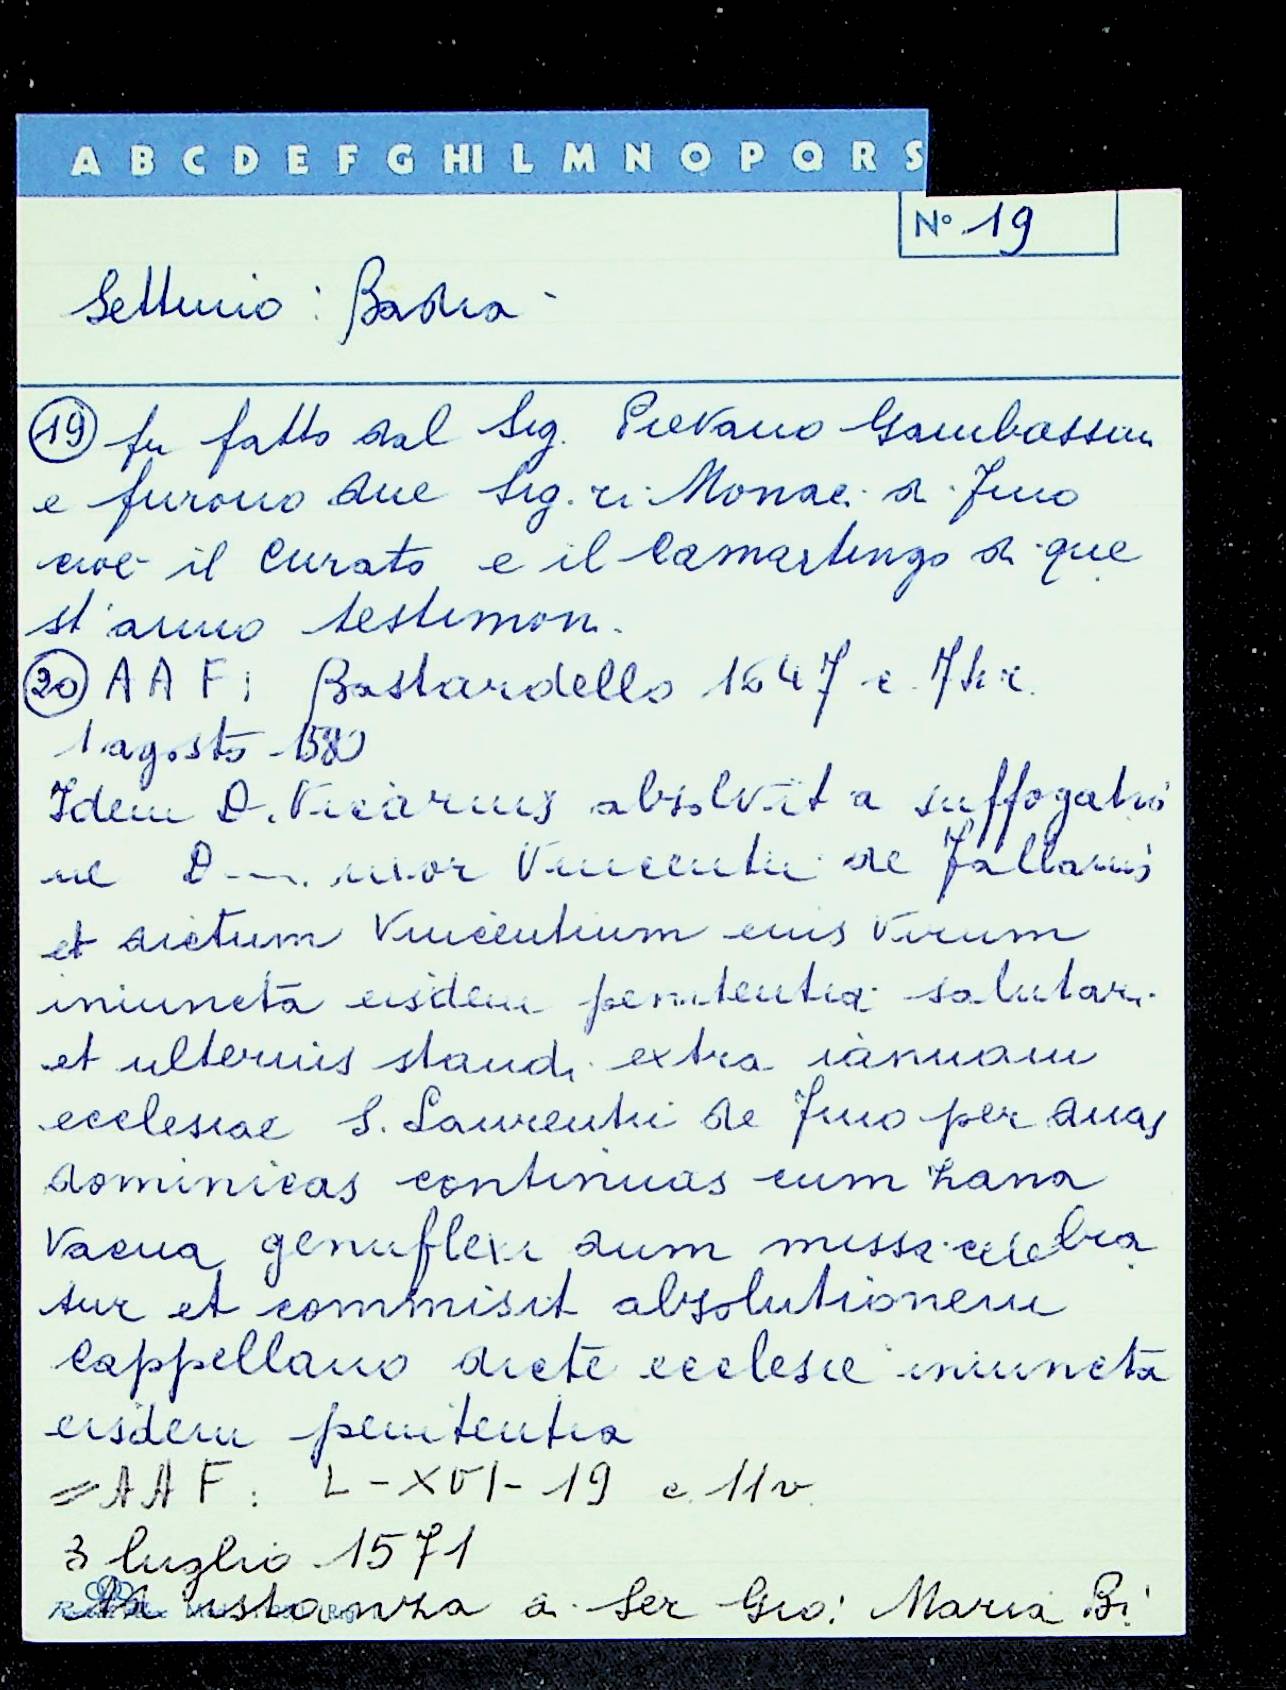 A B C D E F G HI L M N O P Q R S
N° 19
Settimo: Badia
(19) fu fatto dal Sig. Pievano Gambassini
e furono due Sig.ri Monaci di Jmo
cioè il Curato e il Camarlingo di que
st'anno testimoni.
(20) A A F: Bastardello 1647 c.
1 agosto 1580
Idem D. Vicarius absolvit a suffogatio
ne D---. uxor Vincentii de Fallanis
et dictum Vincentium eius virum
iniunctā eisdem penitentia salutari
et ulterius standi extra ianuam
ecclesiae S. Laurentii de Jmo per duas
dominicas continuas cum zana
vacua genuflexi dum missa celebra
tur et commisit absolutionem
Cappellano dictē ecclesie iniunctā
eisdem penitentia
= A A F: L-XVI-19 c. 11v.
3 luglio 1571
Ad istanza di Ser Gio: Maria Bi